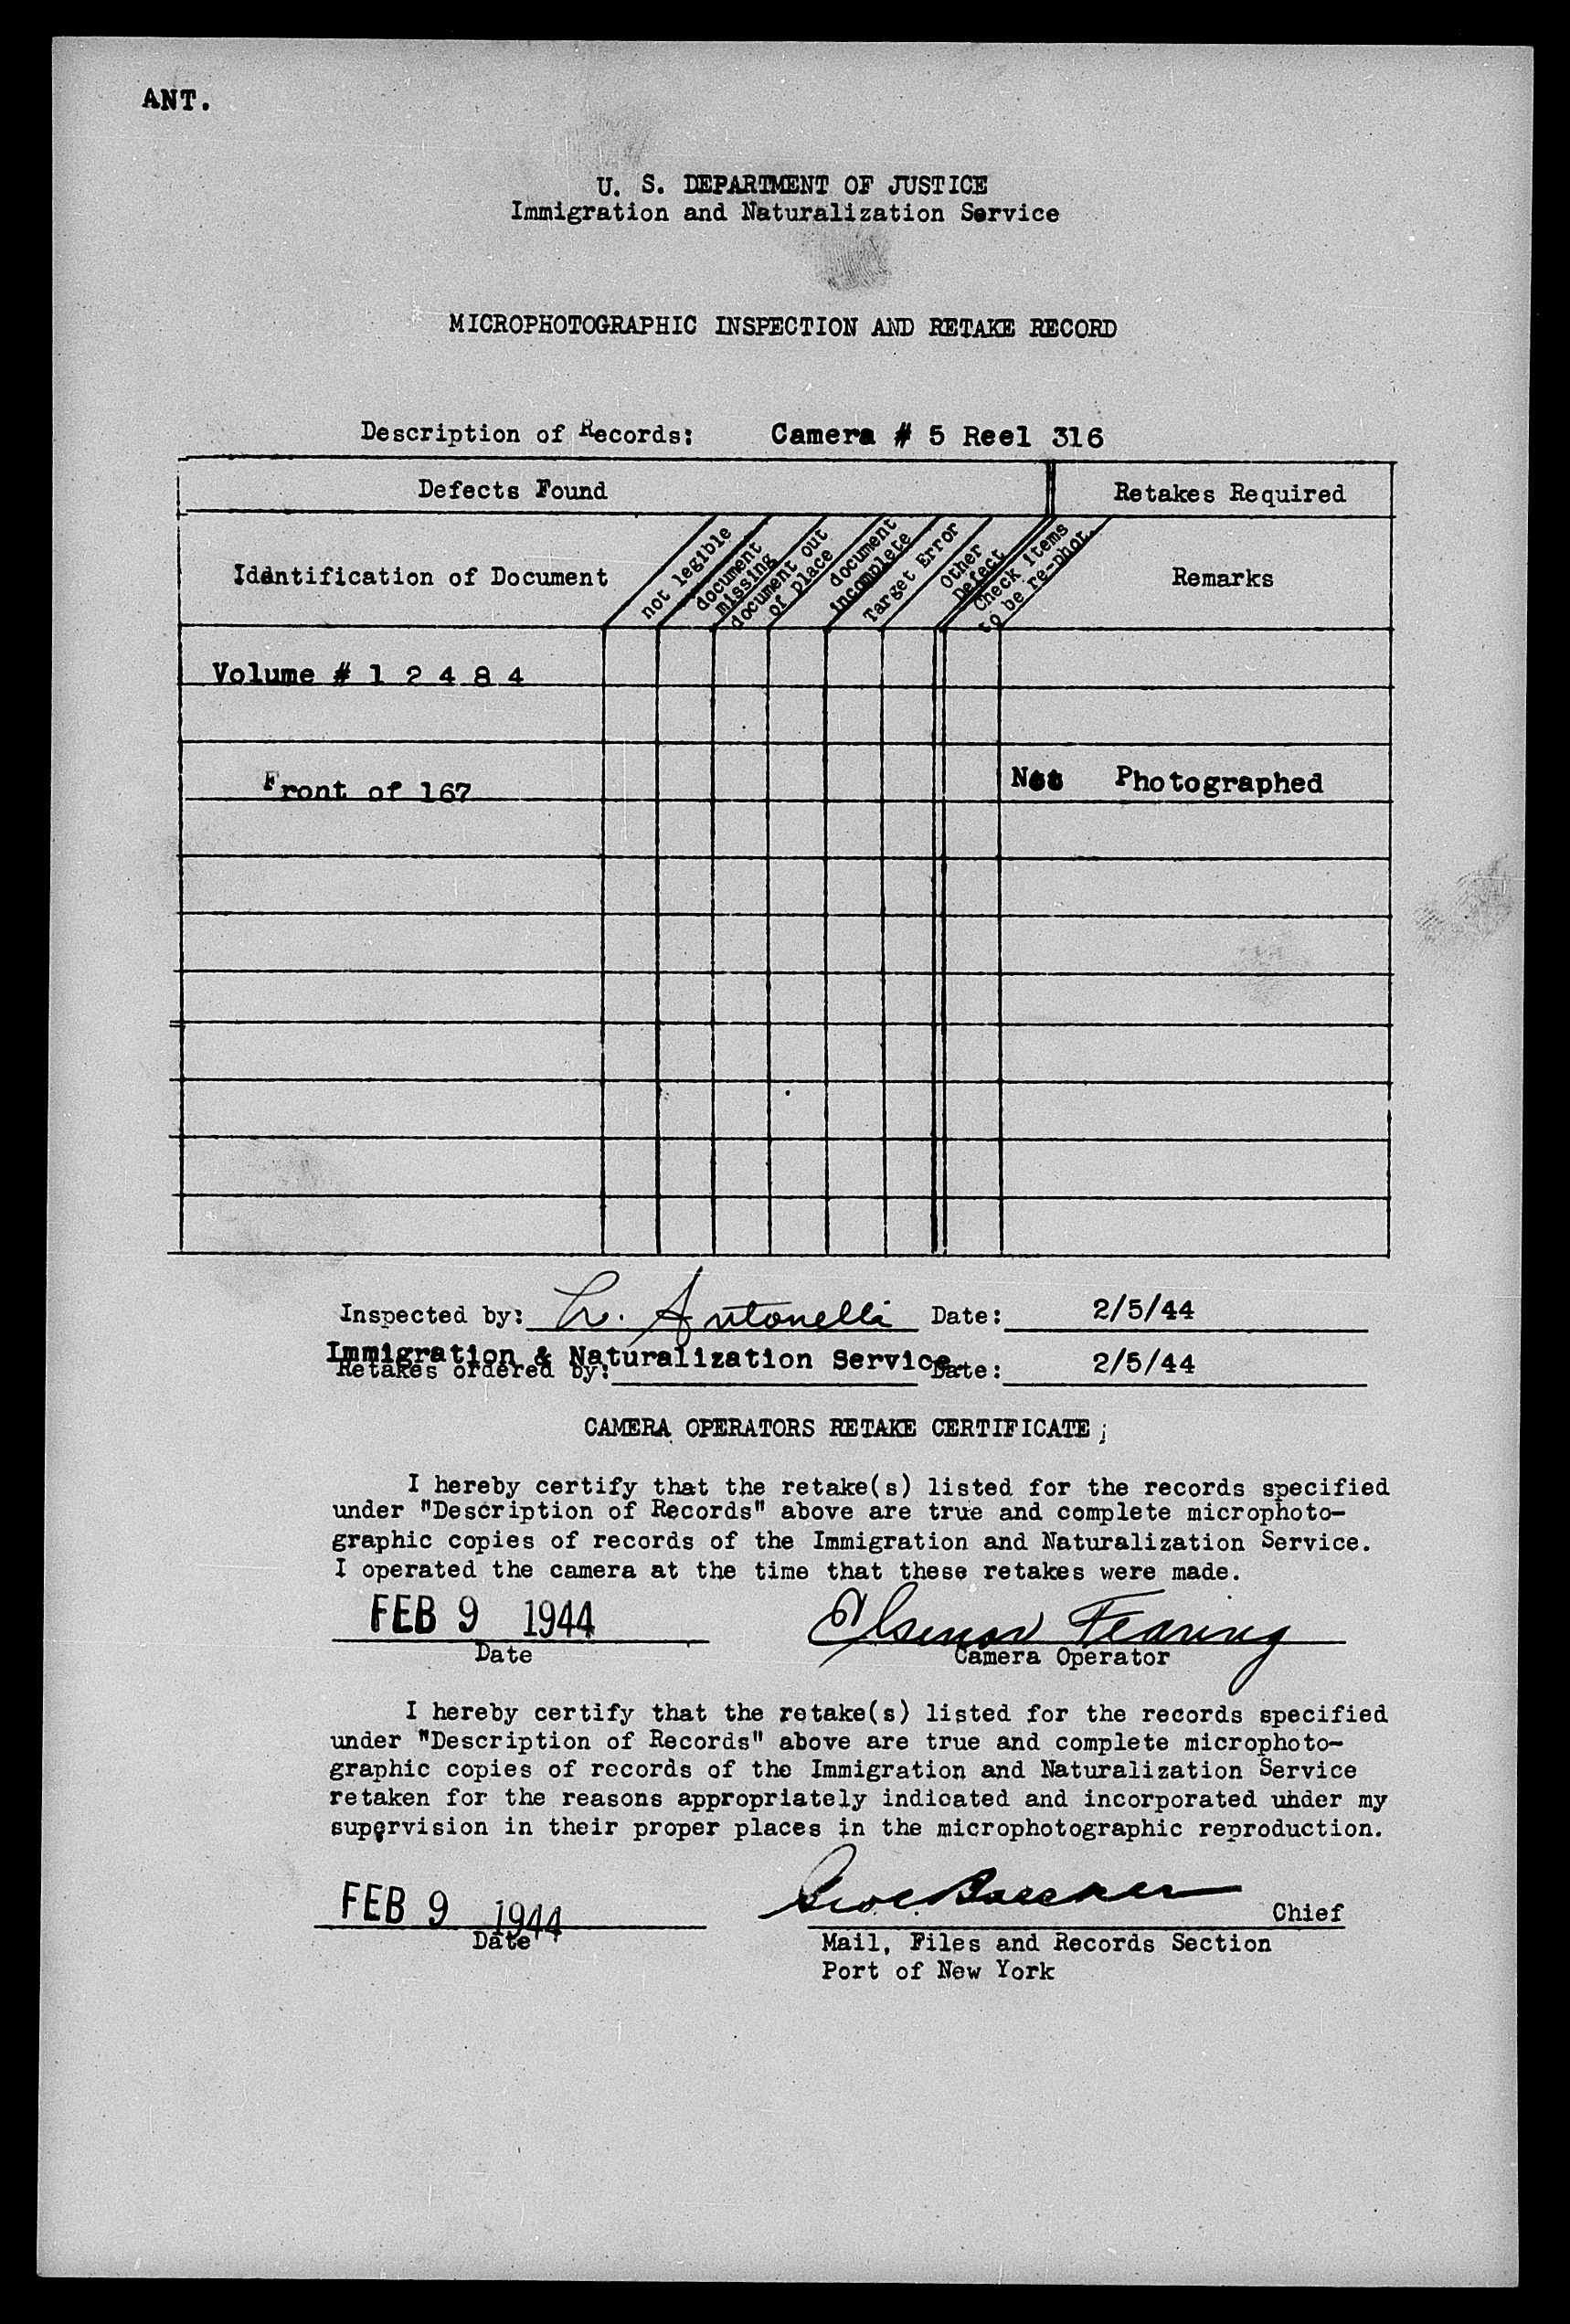 ANT.
U. S. DEPARTMENT OF JUSTICE
Immigration and Naturalization Service
MICROPHOTOGRAPHIC INSPECTION AND RETAKE RECORD
Description of Records: Camera # 5 Reel 316
Defects Found
Retakes Required
Identification of Document
not legible
document
missing
document out
of place
document
incomplete
Target Error
Other
Defect
Check items
to be re-phot.
Remarks
Volume # 1 2 4 8 4
Front of 167 Not Photographed
Inspected by: L. Antonelli Date: 2/5/44
Immigration & Naturalization Service.
Retakes ordered by: Date: 2/5/44
CAMERA OPERATORS RETAKE CERTIFICATE
I hereby certify that the retake(s) listed for the records specified
under "Description of Records" above are true and complete microphoto-
graphic copies of records of the Immigration and Naturalization Service.
I operated the camera at the time that these retakes were made.
FEB 9 1944 Elsinor Fearing
Date Camera Operator
I hereby certify that the retake(s) listed for the records specified
under "Description of Records" above are true and complete microphoto-
graphic copies of records of the Immigration and Naturalization Service
retaken for the reasons appropriately indicated and incorporated under my
supervision in their proper places in the microphotographic reproduction.
FEB 9 1944 Chief
Date Mail, Files and Records Section
Port of New York